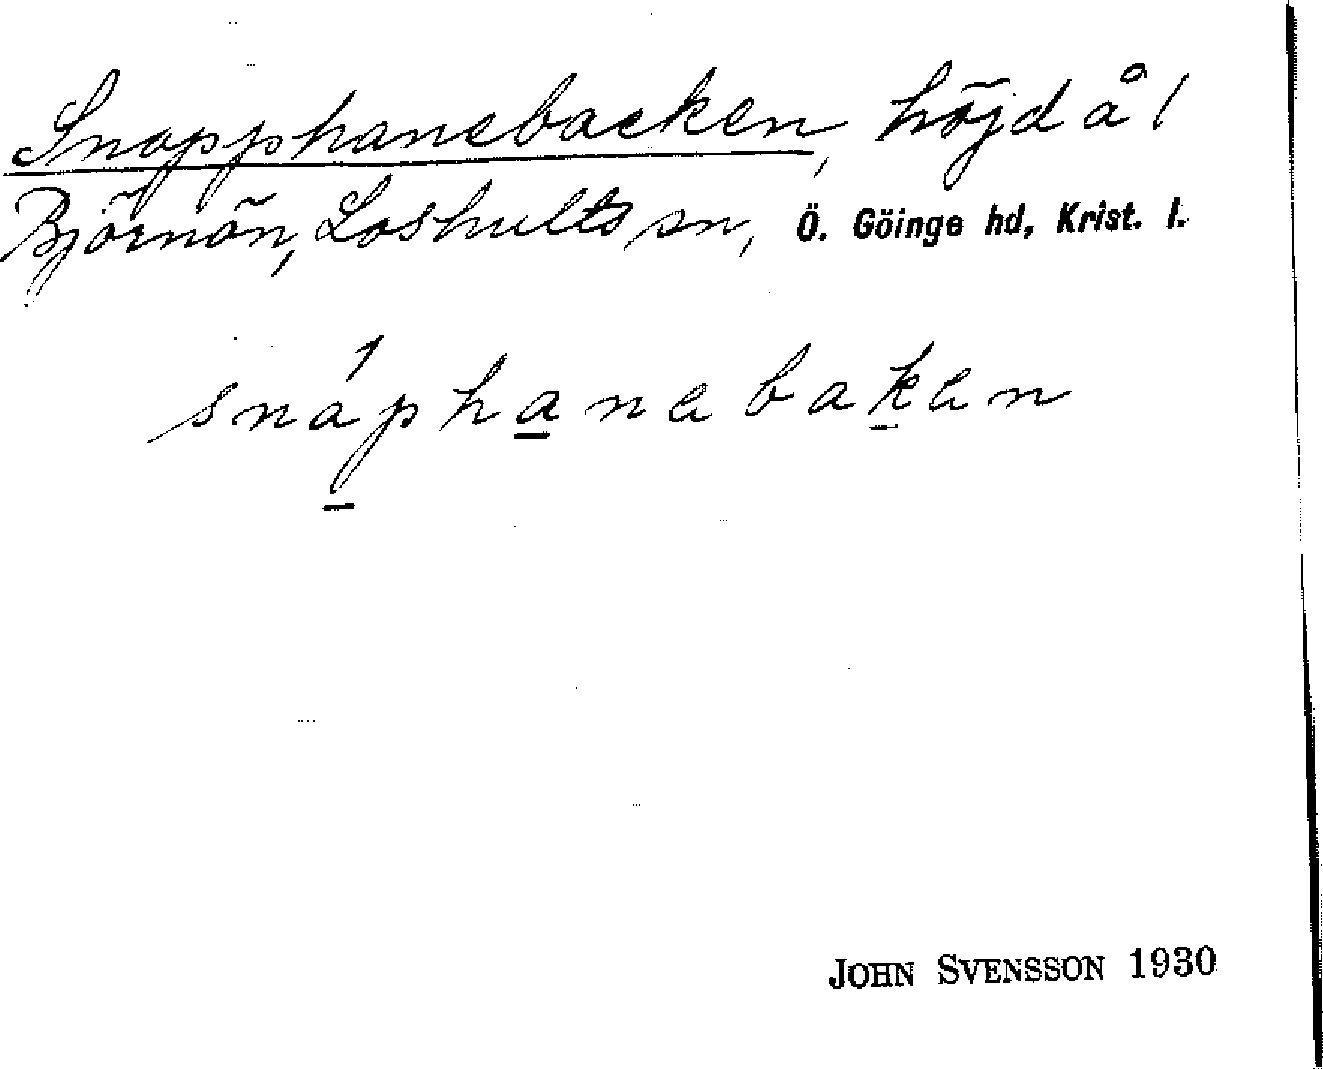 Snapphanebacken, höjd å /
Björnön, Loshults sn, Ö. Göinge hd, Krist. l.
snáphanebaken
JOHN SVENSSON 1930